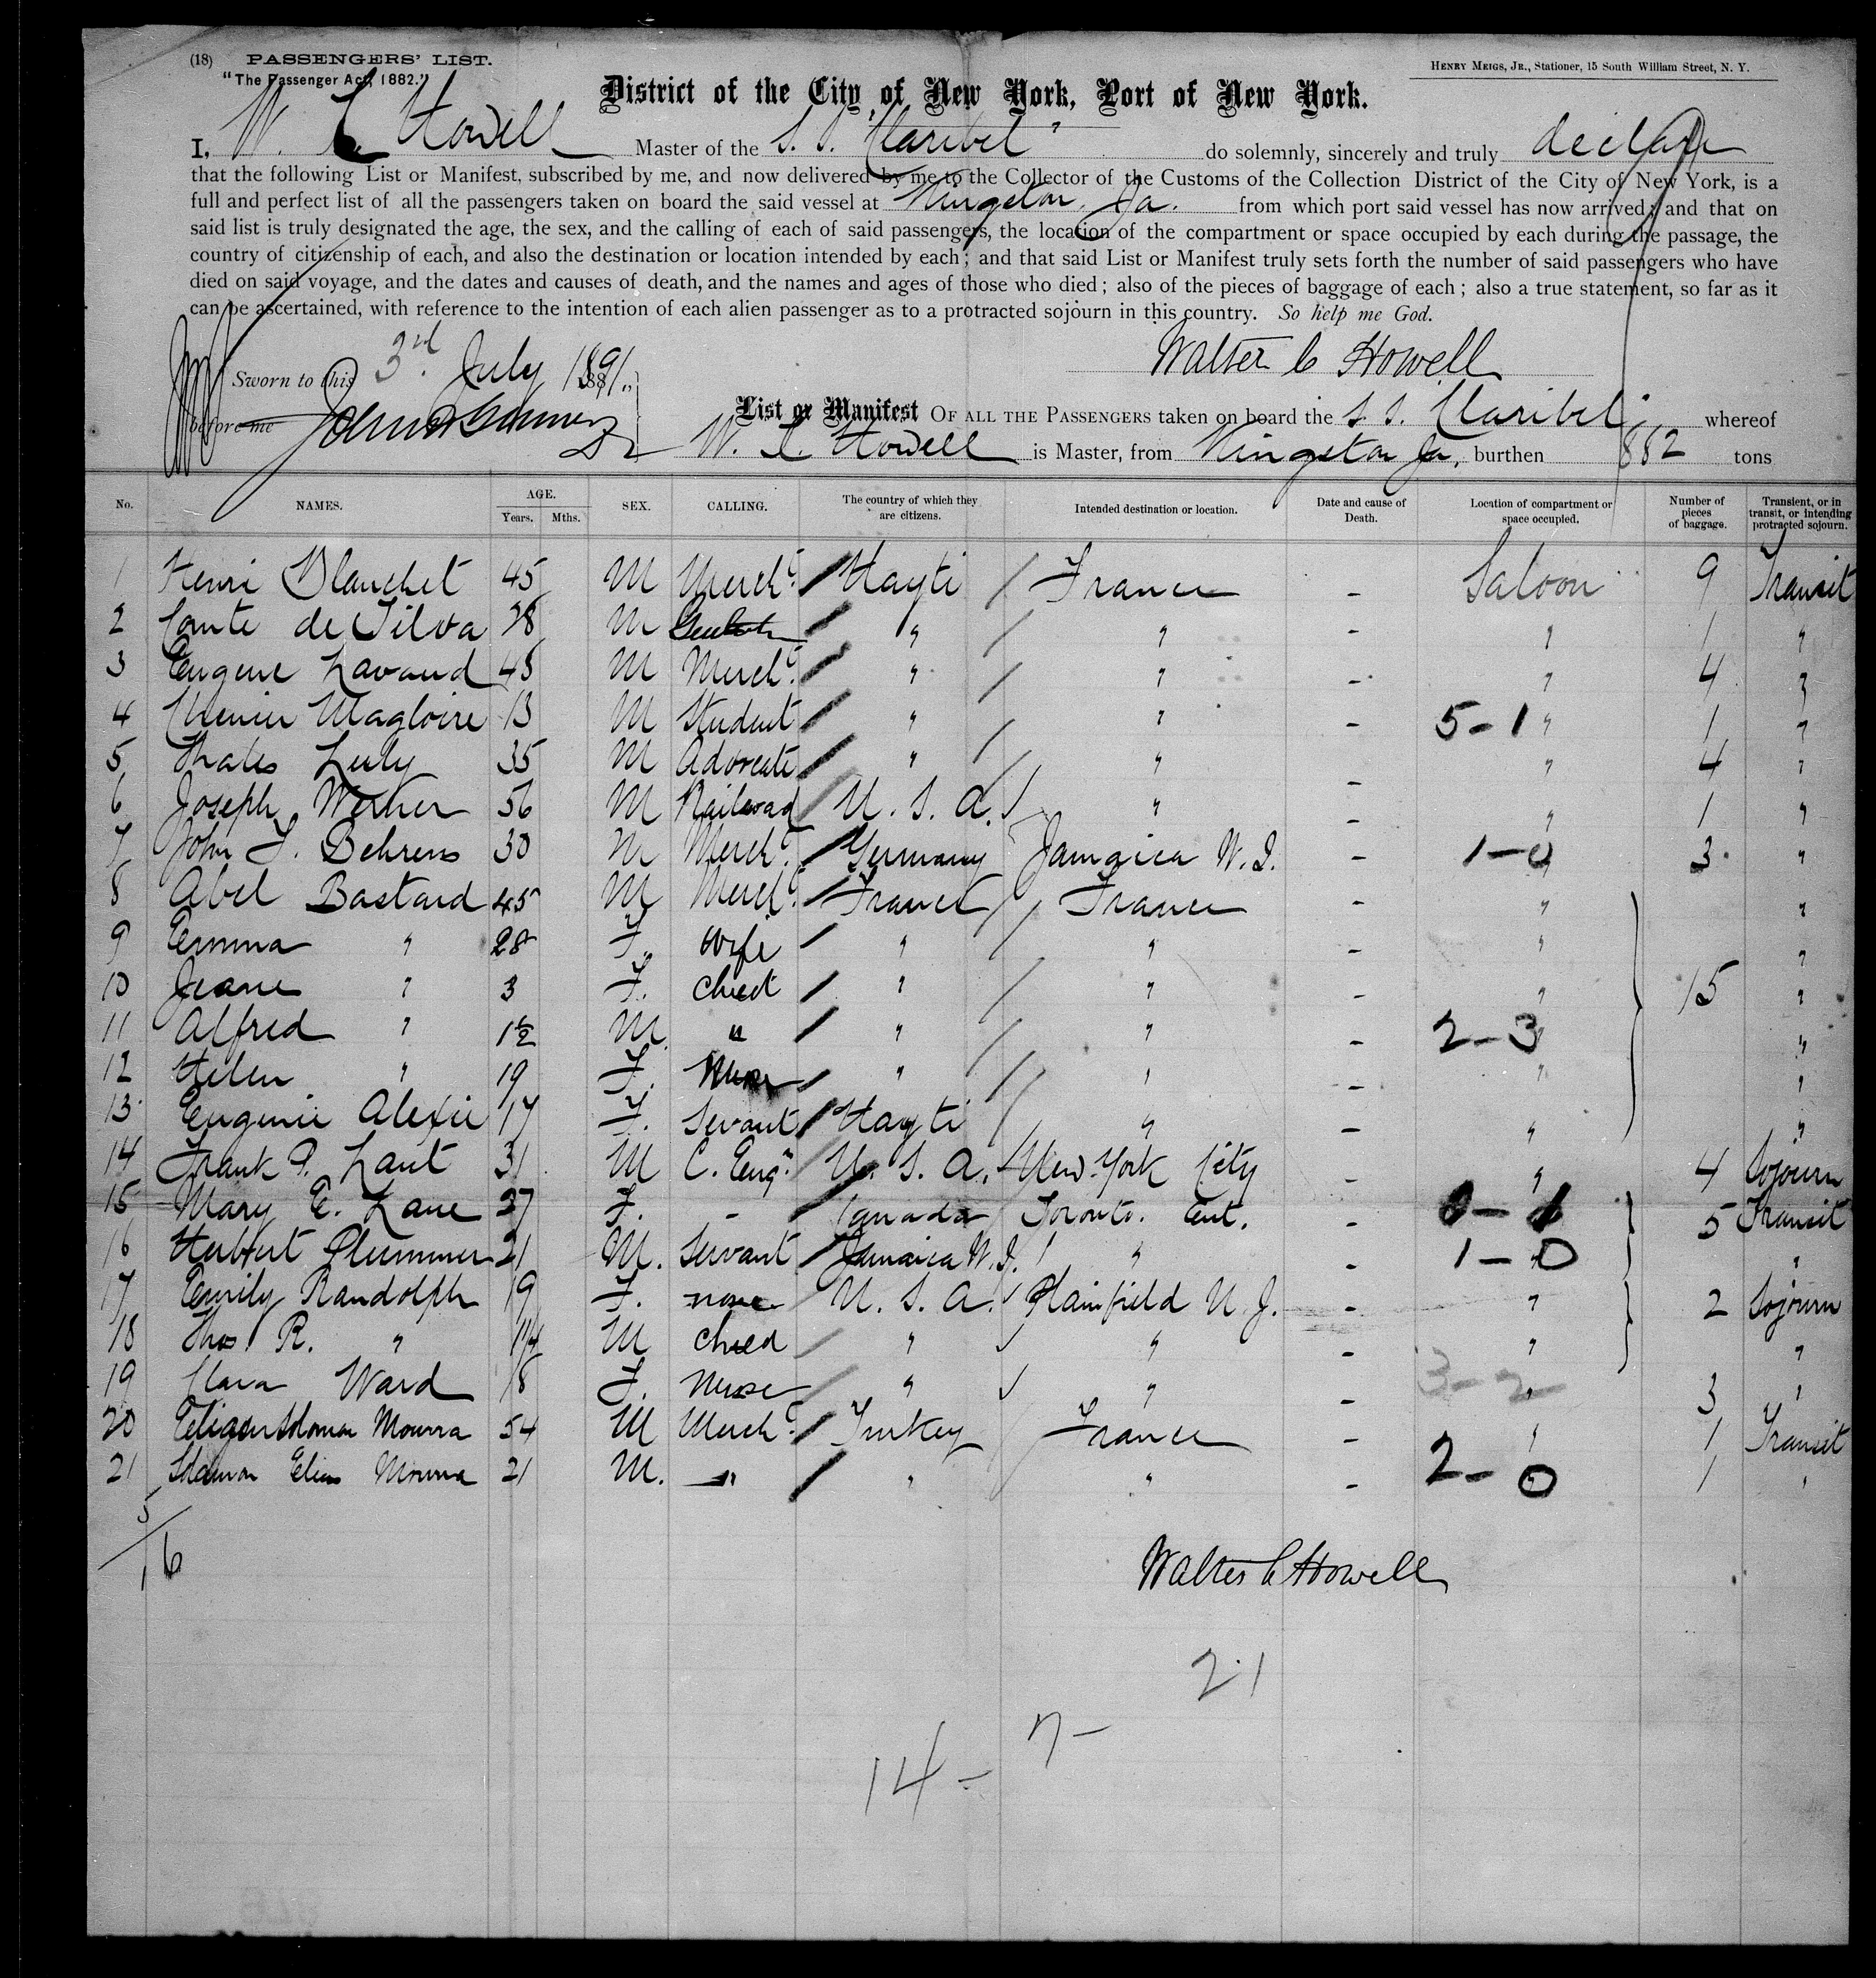 (18) PASSENGERS' LIST.
"The Passenger Act, 1882."
HENRY MEIGS, JR., Stationer, 15 South William Street, N. Y.
District of the City of New York, Port of New York.
I, W. C. Howell Master of the S. S. "Claribel" do solemnly, sincerely and truly declare
that the following List or Manifest, subscribed by me, and now delivered by me to the Collector of the Customs of the Collection District of the City of New York, is a
full and perfect list of all the passengers taken on board the said vessel at Kingston, Ja. from which port said vessel has now arrived; and that on
said list is truly designated the age, the sex, and the calling of each of said passengers, the location of the compartment or space occupied by each during the passage, the
country of citizenship of each, and also the destination or location intended by each; and that said List or Manifest truly sets forth the number of said passengers who have
died on said voyage, and the dates and causes of death, and the names and ages of those who died; also of the pieces of baggage of each; also a true statement, so far as it
can be ascertained, with reference to the intention of each alien passenger as to a protracted sojourn in this country. So help me God.
Walter C Howell
Sworn to this 3rd July 1891
before me
List or Manifest OF ALL THE PASSENGERS taken on board the S. S. Claribel whereof
W. C. Howell is Master, from Kingston Ja, burthen 882 tons
No. NAMES. AGE. Years. Mths. SEX. CALLING. The country of which they are citizens. Intended destination or location. Date and cause of Death. Location of compartment or space occupied. Number of pieces of baggage. Transient, or in transit, or intending protracted sojourn.
1 Henri Blanchet 45 M Mercht. Hayti France - Saloon 9 Transit
2 Comte de Silva 28 M " " - " 1 "
3 Eugene Lavaud 45 M Mercht. " " - " 4 "
4 Magloire 13 M Student " " - 5-1 " 1 "
5 Thales Luly 35 M Advocate " " - " 4 "
6 Joseph Werner 56 M Railroad U. S. A. " - " 1 "
7 John F. Behrens 30 M Mercht. Germany Jamaica W. I. - 1-0 " 3 "
8 Abel Bastard 45 M Mercht. France France - " "
9 Emma " 28 F. Wife " " - " "
10 Jeane " 3 F. Child " " - " 15 "
11 Alfred " 1½ M. " " " - 2-3 " "
12 Helen " 19 F. Nurse " " - " "
13 Eugenie Alexie 17 F. Servant Hayti " - " "
14 Frank P. Lant 31 M C. Engr. U. S. A. New York City - " 4 Sojourn
15 Mary E. Lane 27 F. - Canada Toronto. Ont. - 0-1 5 Transit
16 Herbert Plummer 21 M. Servant Jamaica W. I. " - 1-0 "
17 Emily Randolph 19 F. none U. S. A. Plainfield N. J. - " 2 Sojourn
18 Thos R. " 1¼ M Child " " - " "
19 Clara Ward 18 F. Nurse " " - 3-2 " 3 "
20 Mourra 54 M Mercht. Turkey France - " 1 Transit
21 Solomon Elias Mourra 21 M. " " " - 2-0 " 1 "
5/16
Walter C Howell
21
7-
14-